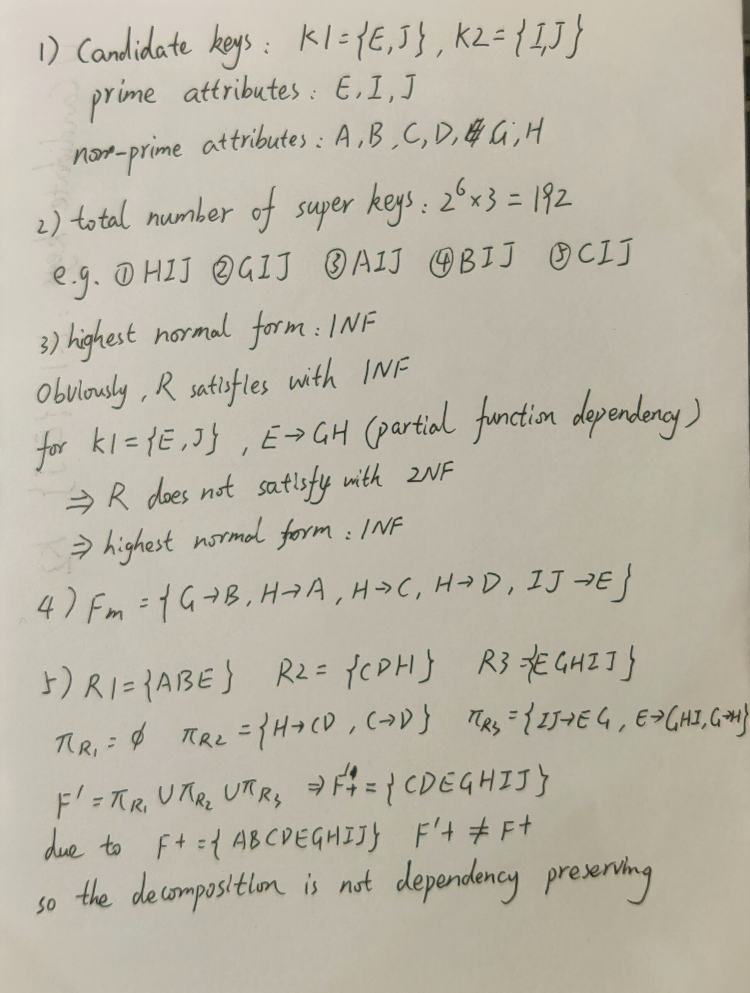 1) Candidate keys: K1={E,J}, K2={I,J}
prime attributes: E, I, J
non-prime attributes: A, B, C, D, G, H
2) total number of super keys: 2⁶×3=192
e.g. ① HIJ ② GIJ ③ AIJ ④ BIJ ⑤ CIJ
3) highest normal form: 1NF
Obviously, R satisfies with 1NF
for K1={E,J}, E→GH (partial function dependency)
⇒ R does not satisfy with 2NF
⇒ highest normal form: 1NF
4) Fm = {G→B, H→A, H→C, H→D, IJ→E}
5) R1={ABE} R2={CDH} R3={EGHIJ}
πR₁=∅ πR2={H→CD, C→D} πR3={IJ→EG, E→GHI, G→H}
F'=πR₁∪πR₂∪πR₃ ⇒F'+={CDEGHIJ}
due to F+={ABCDEGHIJ} F'+≠F+
so the decomposition is not dependency preserving